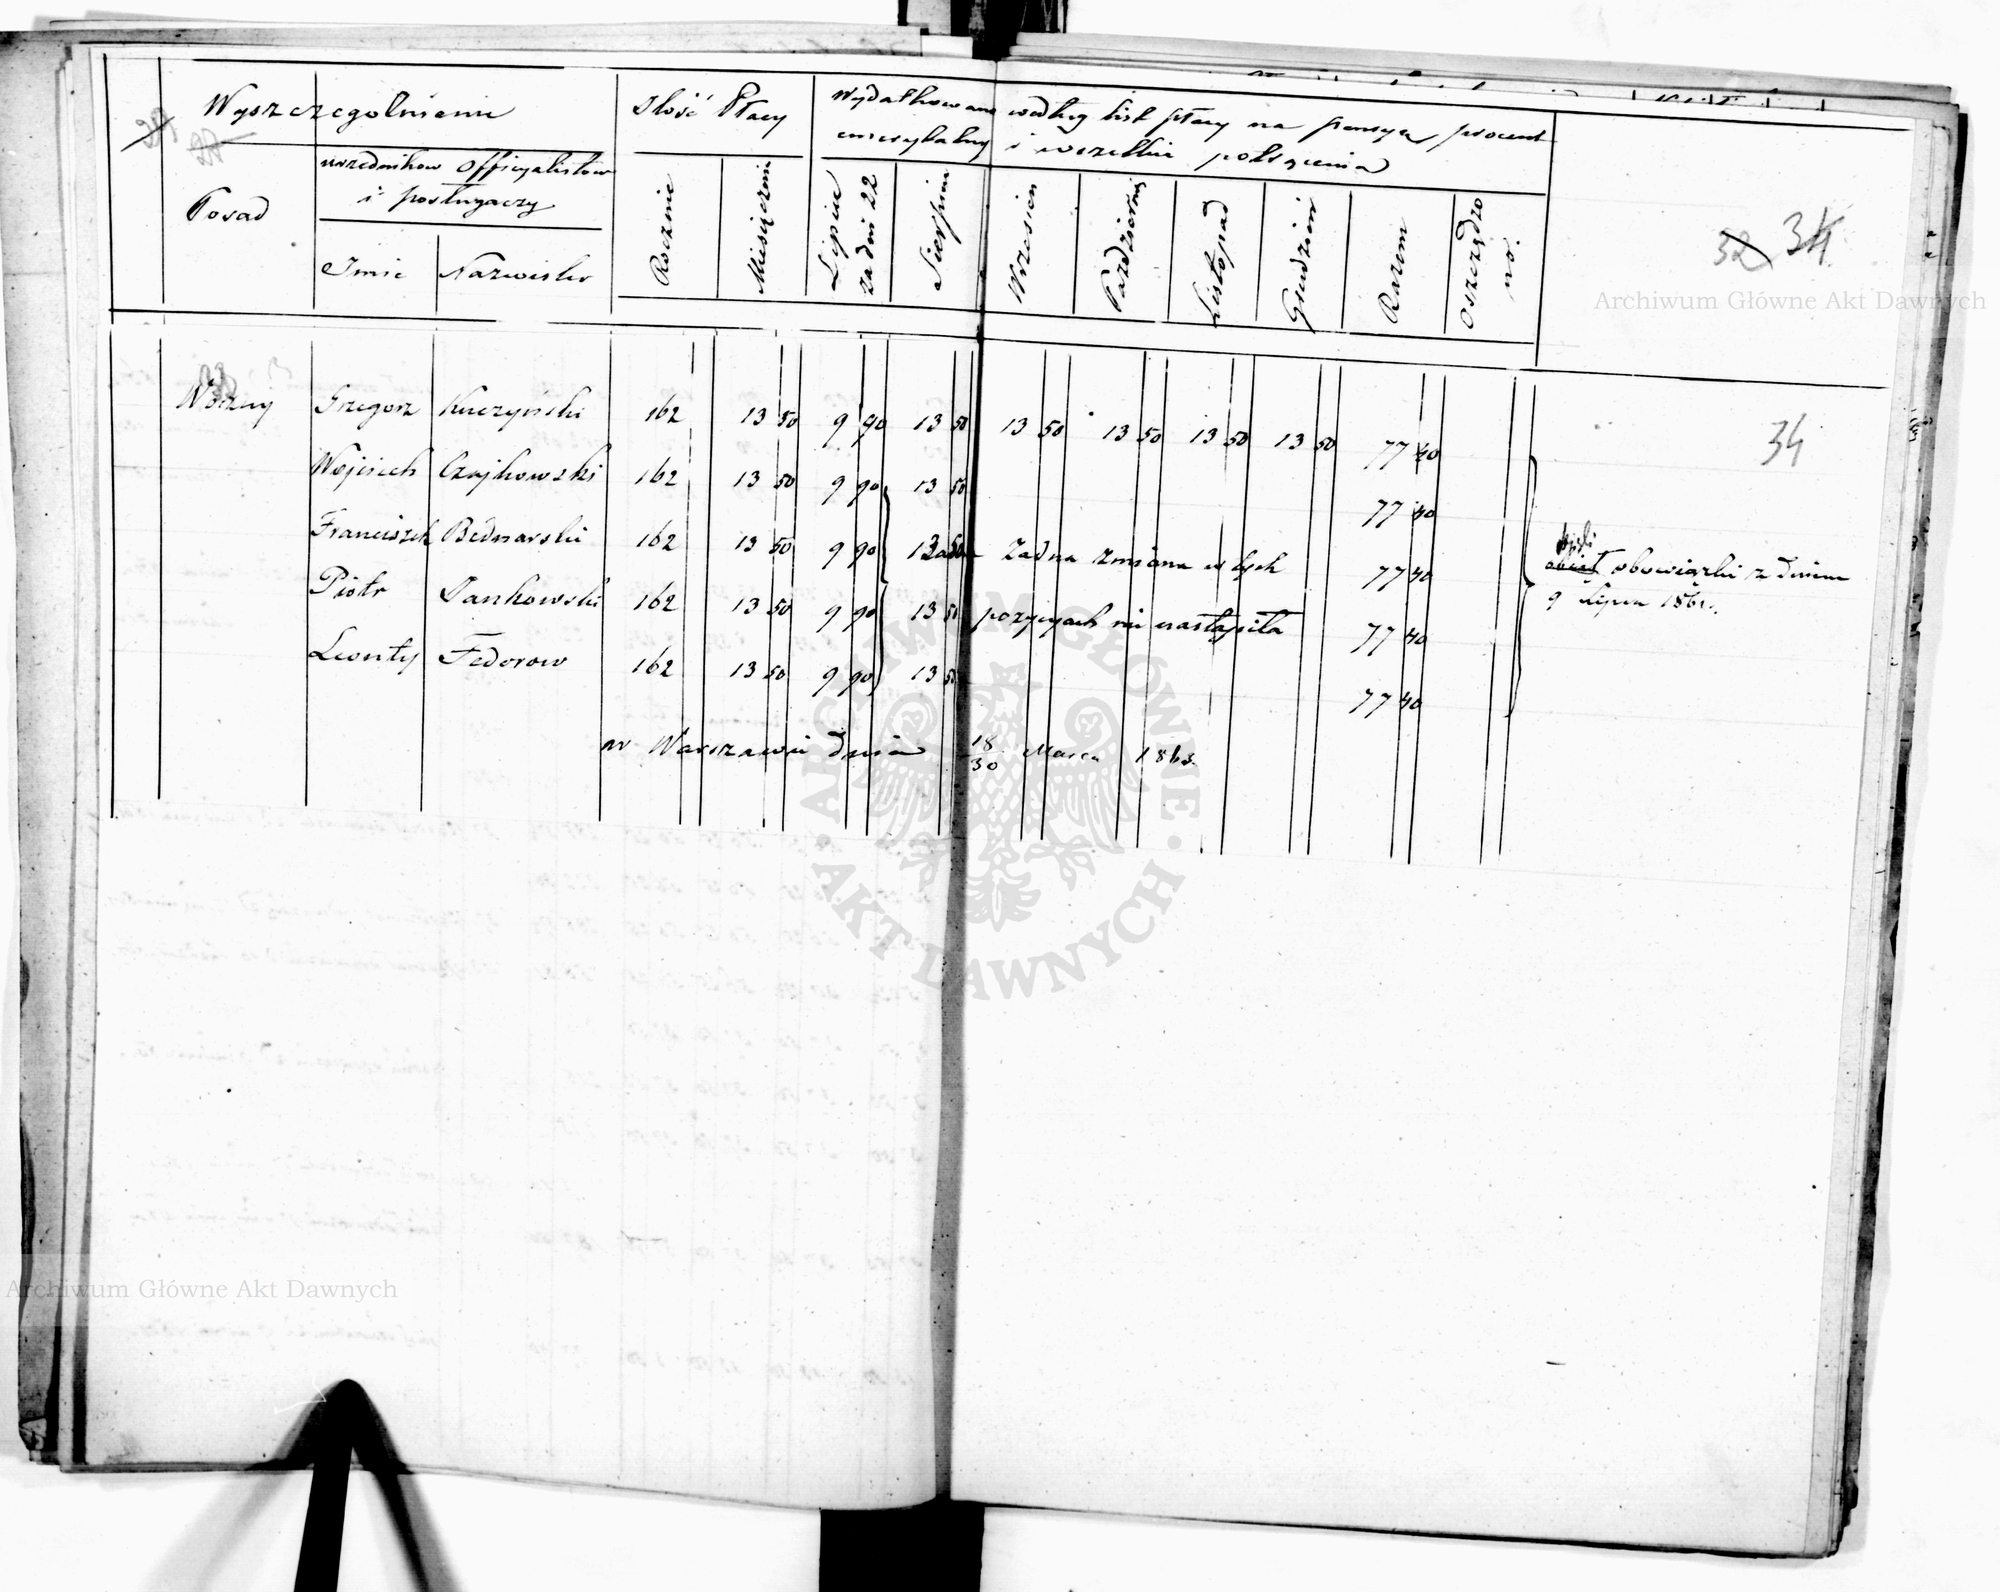 Wyszczegolnienie
Ilość Płacy
Wydatkowano według list płacy na pensye, procent
emerytalny i wszelkie potrącenia
Posad
urzedników Officyalistow
i posługaczy
Imie
Nazwisko
Rocznie
Miesięcznie
Lipiec
za dni 22
Sierpień
Wrzesien
Październik
Listopad
Grudzień
Razem
Oszczędzo
no.
32 34
Archiwum Główne Akt Dawnych
Woźny Grzegorz Kuczyński 162 13 50 9 90 13 50 13 50 13 50 13 50 13 50 77 40
34
Wojciech Czajkowski 162 13 50 9 90 13 50 77 40
Franciszek Bednarski 162 13 50 9 90 13 50 Żadna zmiana w tych 77 40
obowiązki z dniem
9 Lipca 1861.
Piotr Jankowski 162 13 50 9 90 13 50 pozycyach nie nastąpiła 77 40
Leonty Fedorow 162 13 50 9 90 13 50 77 40
w Warszawie dnia 18/30 Marca 1863.
ARCHIWUM GŁÓWNE
AKT DAWNYCH
Archiwum Główne Akt Dawnych